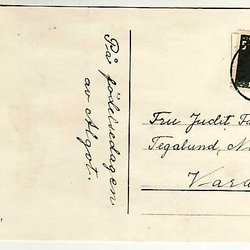 På födelsedagen
av Algot.
Fru Judit
Tegalund, N
Vara